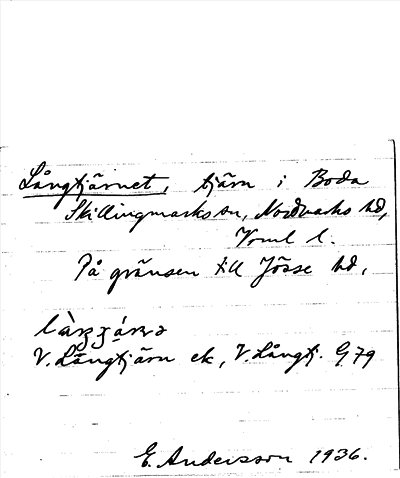 Långtjärnet, tjärn i Boda
Skillingmarks sn, Nordmarks hd,
Vrml l.
På gränsen till Jösse hd,
V. Långtjärn ek, V. Långtj. G79
E. Andersson 1936.